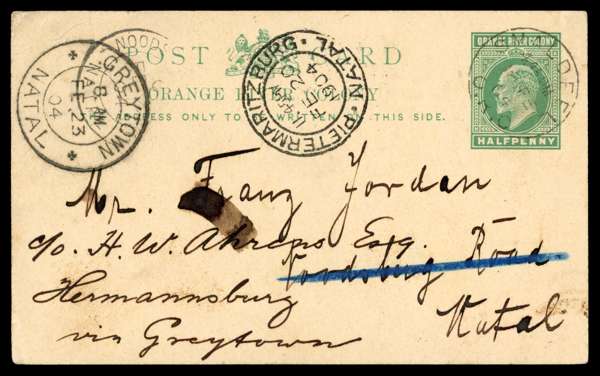 POST CARD
ORANGE RIVER COLONY
THE ADDRESS ONLY TO BE WRITTEN ON THIS SIDE.
ORANGE RIVER COLONY
HALFPENNY
GREYTOWN
8 AM
FE 23
04
NATAL
PIETERMARITZBURG · NATAL
Mr. Franz Jordan
c/o. H. W. Ahrens Esq.
Noordsburg Road
Hermannsburg
Natal
via Greytown